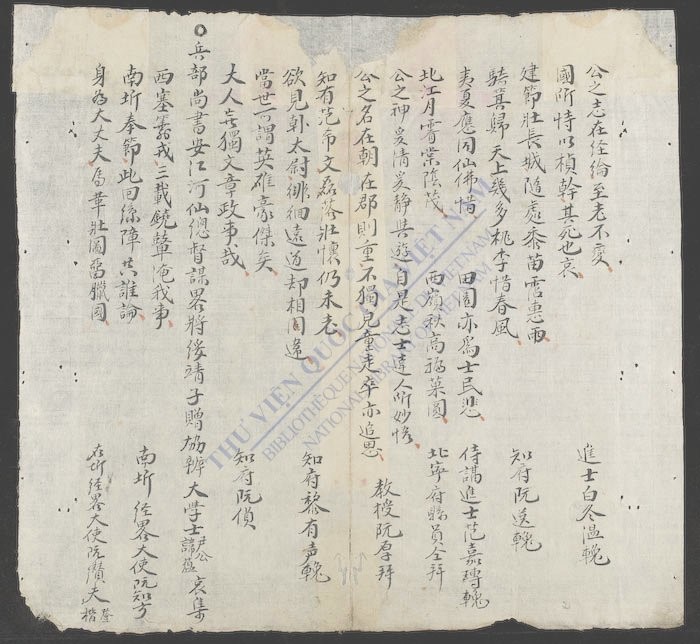 公之志在經綸至老不変
國所恃以楨幹其死也哀 進士白冬温輓
建節壯長城隨處黍苗霑惠雨
騎箕歸天上幾多桃李惜春風 知府阮送輓
夷夏應同仙佛惜 田園亦爲士民悲 侍講進士范嘉磚輓
北江月霄棠陰茂 西嶺秋高福菓圓 北寧府縣員仝拜
公之神爰清爰静共遊自是志士達人所妙悟
公之名在朝在郡則重不獨兒童走卒亦追思 教授阮厚拜
知有范希文磊落壯懷仍未老
欲見韩太尉徘徊遠道却相違 知府黎有声輓
當世可謂英雄豪傑矣
大人豈獨文章政事哉 知府阮偵
兵部尚書安江河仙總督謀畧將綏靖子贈協辦大学士尹公諱蘊哀集
西塞籌戎三載鐃聲我事
南圻奉節此回絲障共誰論 南圻經畧大使阮知方
身為大丈夫馬革壯圖國 在圻經畧大使阮
THƯ VIỆN QUỐC GIA VIỆT NAM
BIBLIOTHÈQUE NATIONALE DU VIETNAM
NATIONAL LIBRARY OF VIETNAM